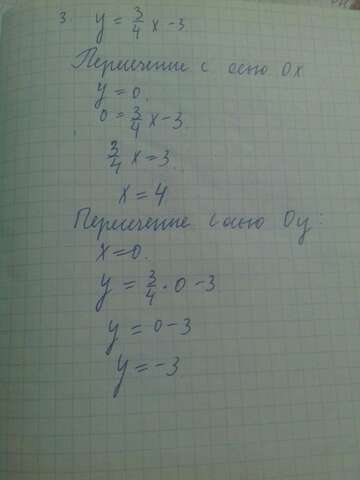 3. y = 3/4 x - 3
Пересечение с осью Ox
y = 0.
0 = 3/4 x - 3.
3/4 x = 3.
x = 4
Пересечение с осью Oy:
x = 0.
y = 3/4 · 0 - 3
y = 0 - 3
y = -3